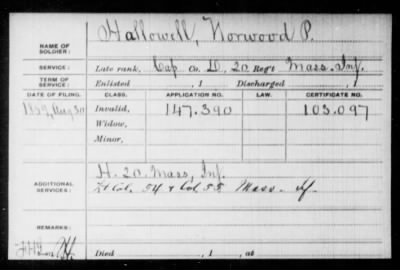 Hallowell, Norwood P.
NAME OF SOLDIER:
SERVICE: Late rank, Cap Co. D, 20 Reg't Mass. Inf.
TERM OF SERVICE: Enlisted , 1 Discharged , 1
DATE OF FILING. CLASS. APPLICATION NO. LAW. CERTIFICATE NO.
Aug 30 Invalid, 147.390 103.097
Widow,
Minor,
H. 20. Mass, Inf.
ADDITIONAL SERVICES: Lt Col. 54 & Col 55 Mass. If
REMARKS:
Died , 1 , at